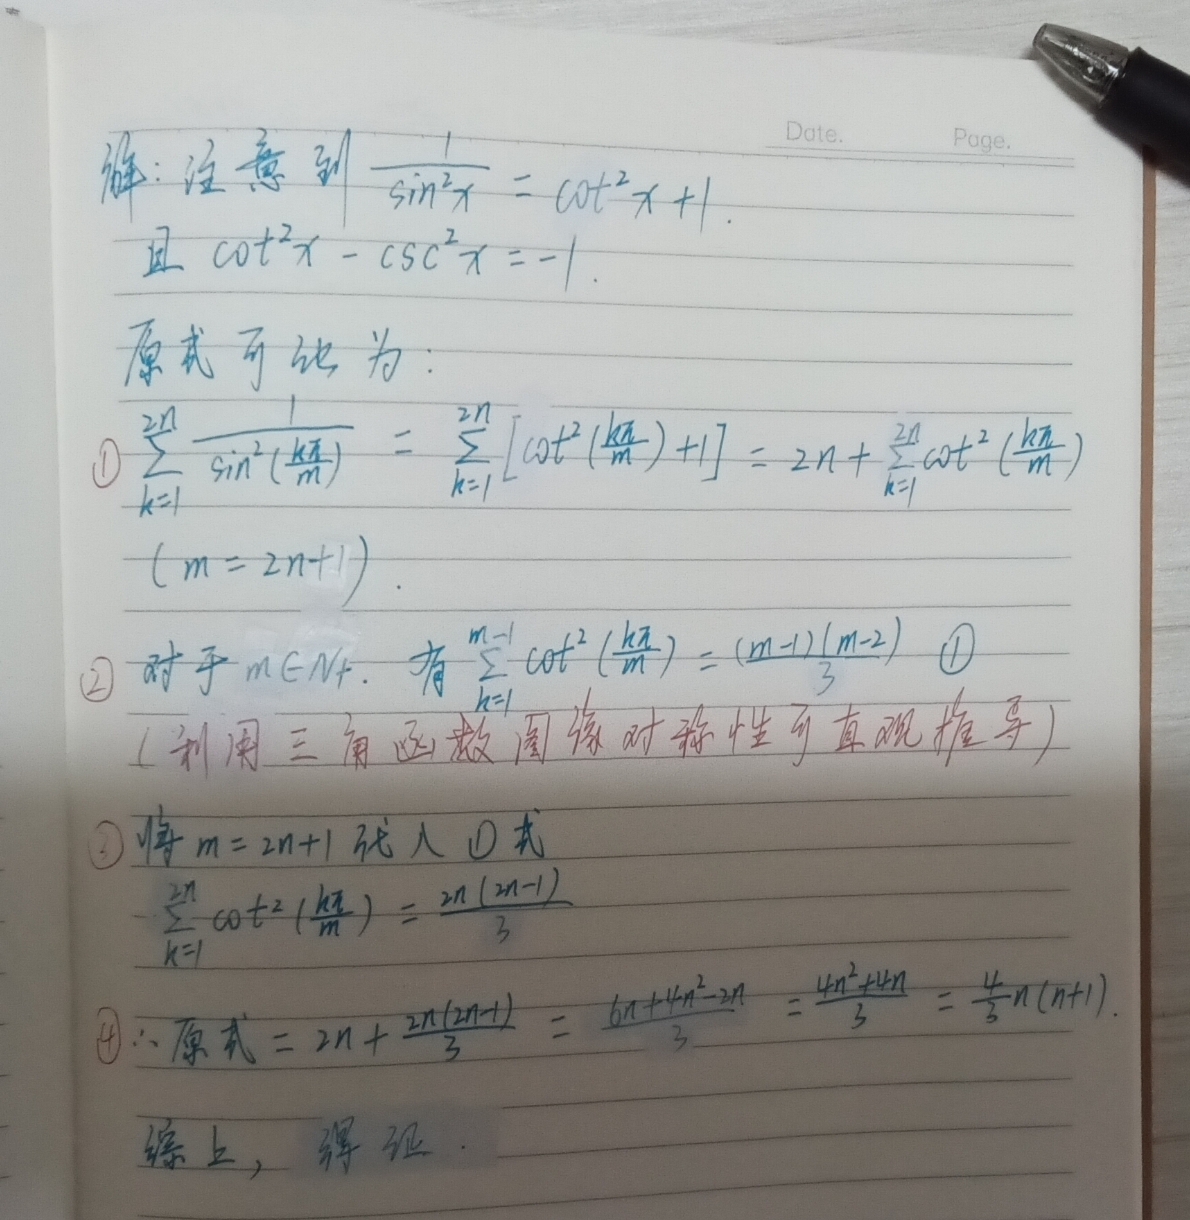 Date. Page.
解：注意到 1/sin²x = cot²x+1.
且 cot²x - csc²x = -1.
原式可化为：
① ∑_{k=1}^{2n} 1/sin²(kπ/m) = ∑_{k=1}^{2n} [cot²(kπ/m)+1] = 2n + ∑_{k=1}^{2n} cot²(kπ/m)
(m = 2n+1).
② 对于 m∈N+. 有 ∑_{k=1}^{m-1} cot²(kπ/m) = (m-1)(m-2)/3 ①
(利用三角函数图像对称性可直观推导)
③ 将 m = 2n+1 代入 ① 式
∑_{k=1}^{2n} cot²(kπ/m) = 2n(2n-1)/3
④ ∴原式 = 2n + 2n(2n-1)/3 = (6n+4n²-2n)/3 = (4n²+4n)/3 = 4/3 n(n+1).
综上，得证.